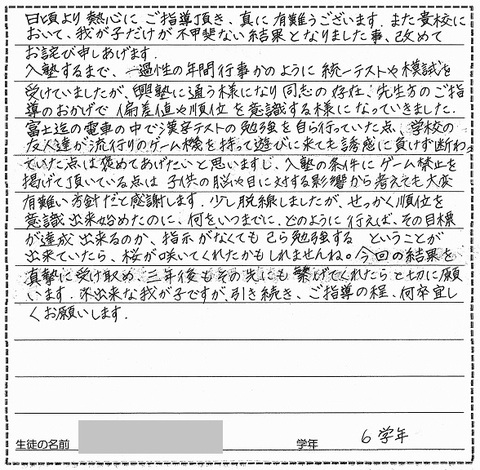 日頃より熱心にご指導頂き、真に有難うございます。また貴校に
おいて、我が子だけが不甲斐ない結果となりました事、改めて
お詫び申しあげます。
入塾するまで、一過性の年間行事かのように統一テストや模試を
受けていましたが、興塾に通う様になり同志の存在、先生方のご指
導のおかげで偏差値や順位を意識する様になっていきました。
富士迄の電車の中で漢字テストの勉強を自ら行っていた点、学校の
友人達が流行りのゲーム機を持って遊びに来ても誘惑に負けず断わっ
ていた点は褒めてあげたいと思いますし、入塾の条件にゲーム禁止を
掲げて頂いている点は子供の脳や目に対する影響から考えても大変
有難い方針だと感謝します。少し脱線しましたが、せっかく順位を
意識出来始めたのに、何をいつまでに、どのように行えば、その目標
が達成出来るのか、指示がなくても自ら勉強する ということが
出来ていたら、桜が咲いてくれたかもしれませんね。今回の結果を
真摯に受け取め、三年後もその先にも繋げてくれたらと切に願
います。不出来な我が子ですが、引き続き、ご指導の程、何卒宜し
くお願いします。
生徒の名前 学年 6学年